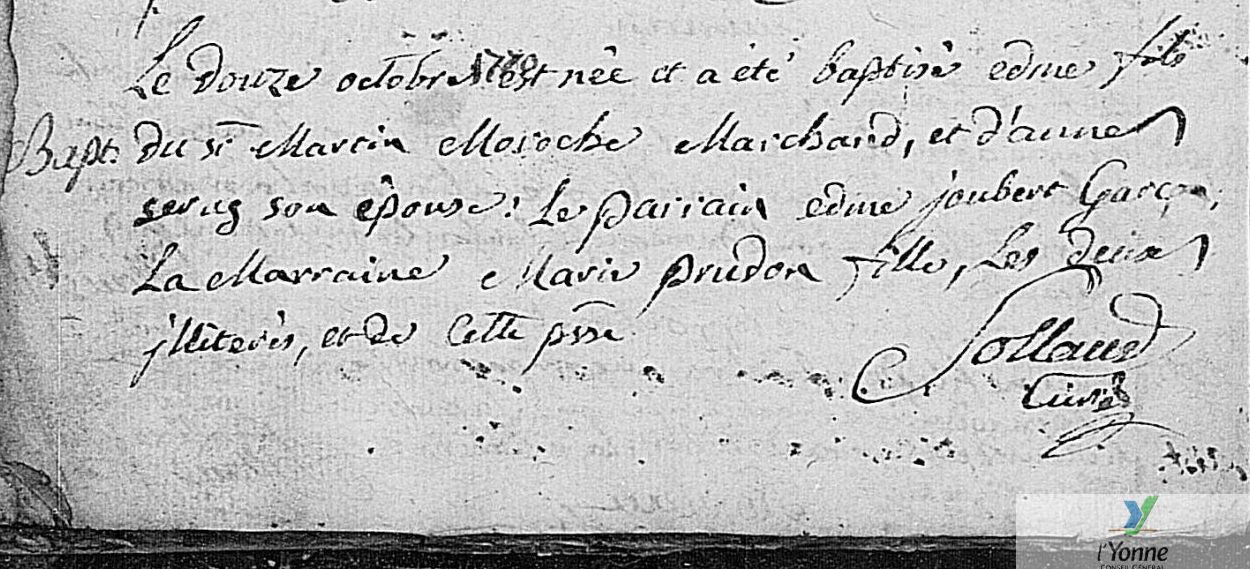 Le douze octobre 1779 est née et a été baptisé edme fils
Bapt. du sr Martin Moroche Marchand, et d'anne
serug son épouse: Le parrain edme joubert Garçon,
La Marraine Marie prudon fille, Les deux
jlliterés, et de Cette psse
Sollaud
Curé
l'Yonne
CONSEIL GÉNÉRAL